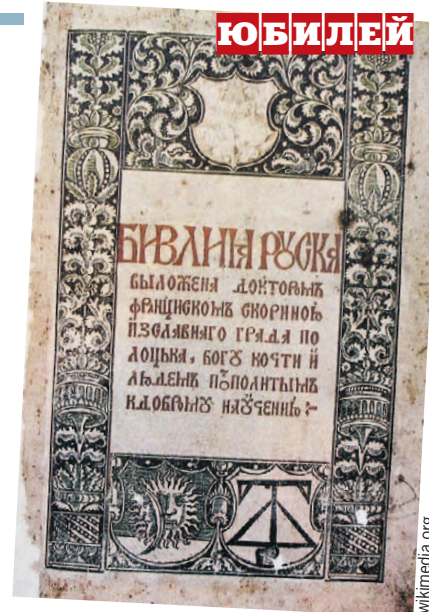 ЮБИЛЕЙ
БИВЛИꙖ РУСКА
ВЫЛОЖЕНА ДОКТОРОМЪ
ФРАНЦИСКОМЪ СКОРИНОЮ
ИЗСЛАВНАГО ГРАДА ПО
ЛОЦЬКА, БОГУ КОЧТИ И
ЛЮДЕМЪ ПОСПОЛИТЫМЪ
КДОБРОМУ НАУЧЕНИЮ :~
wikimedia.org